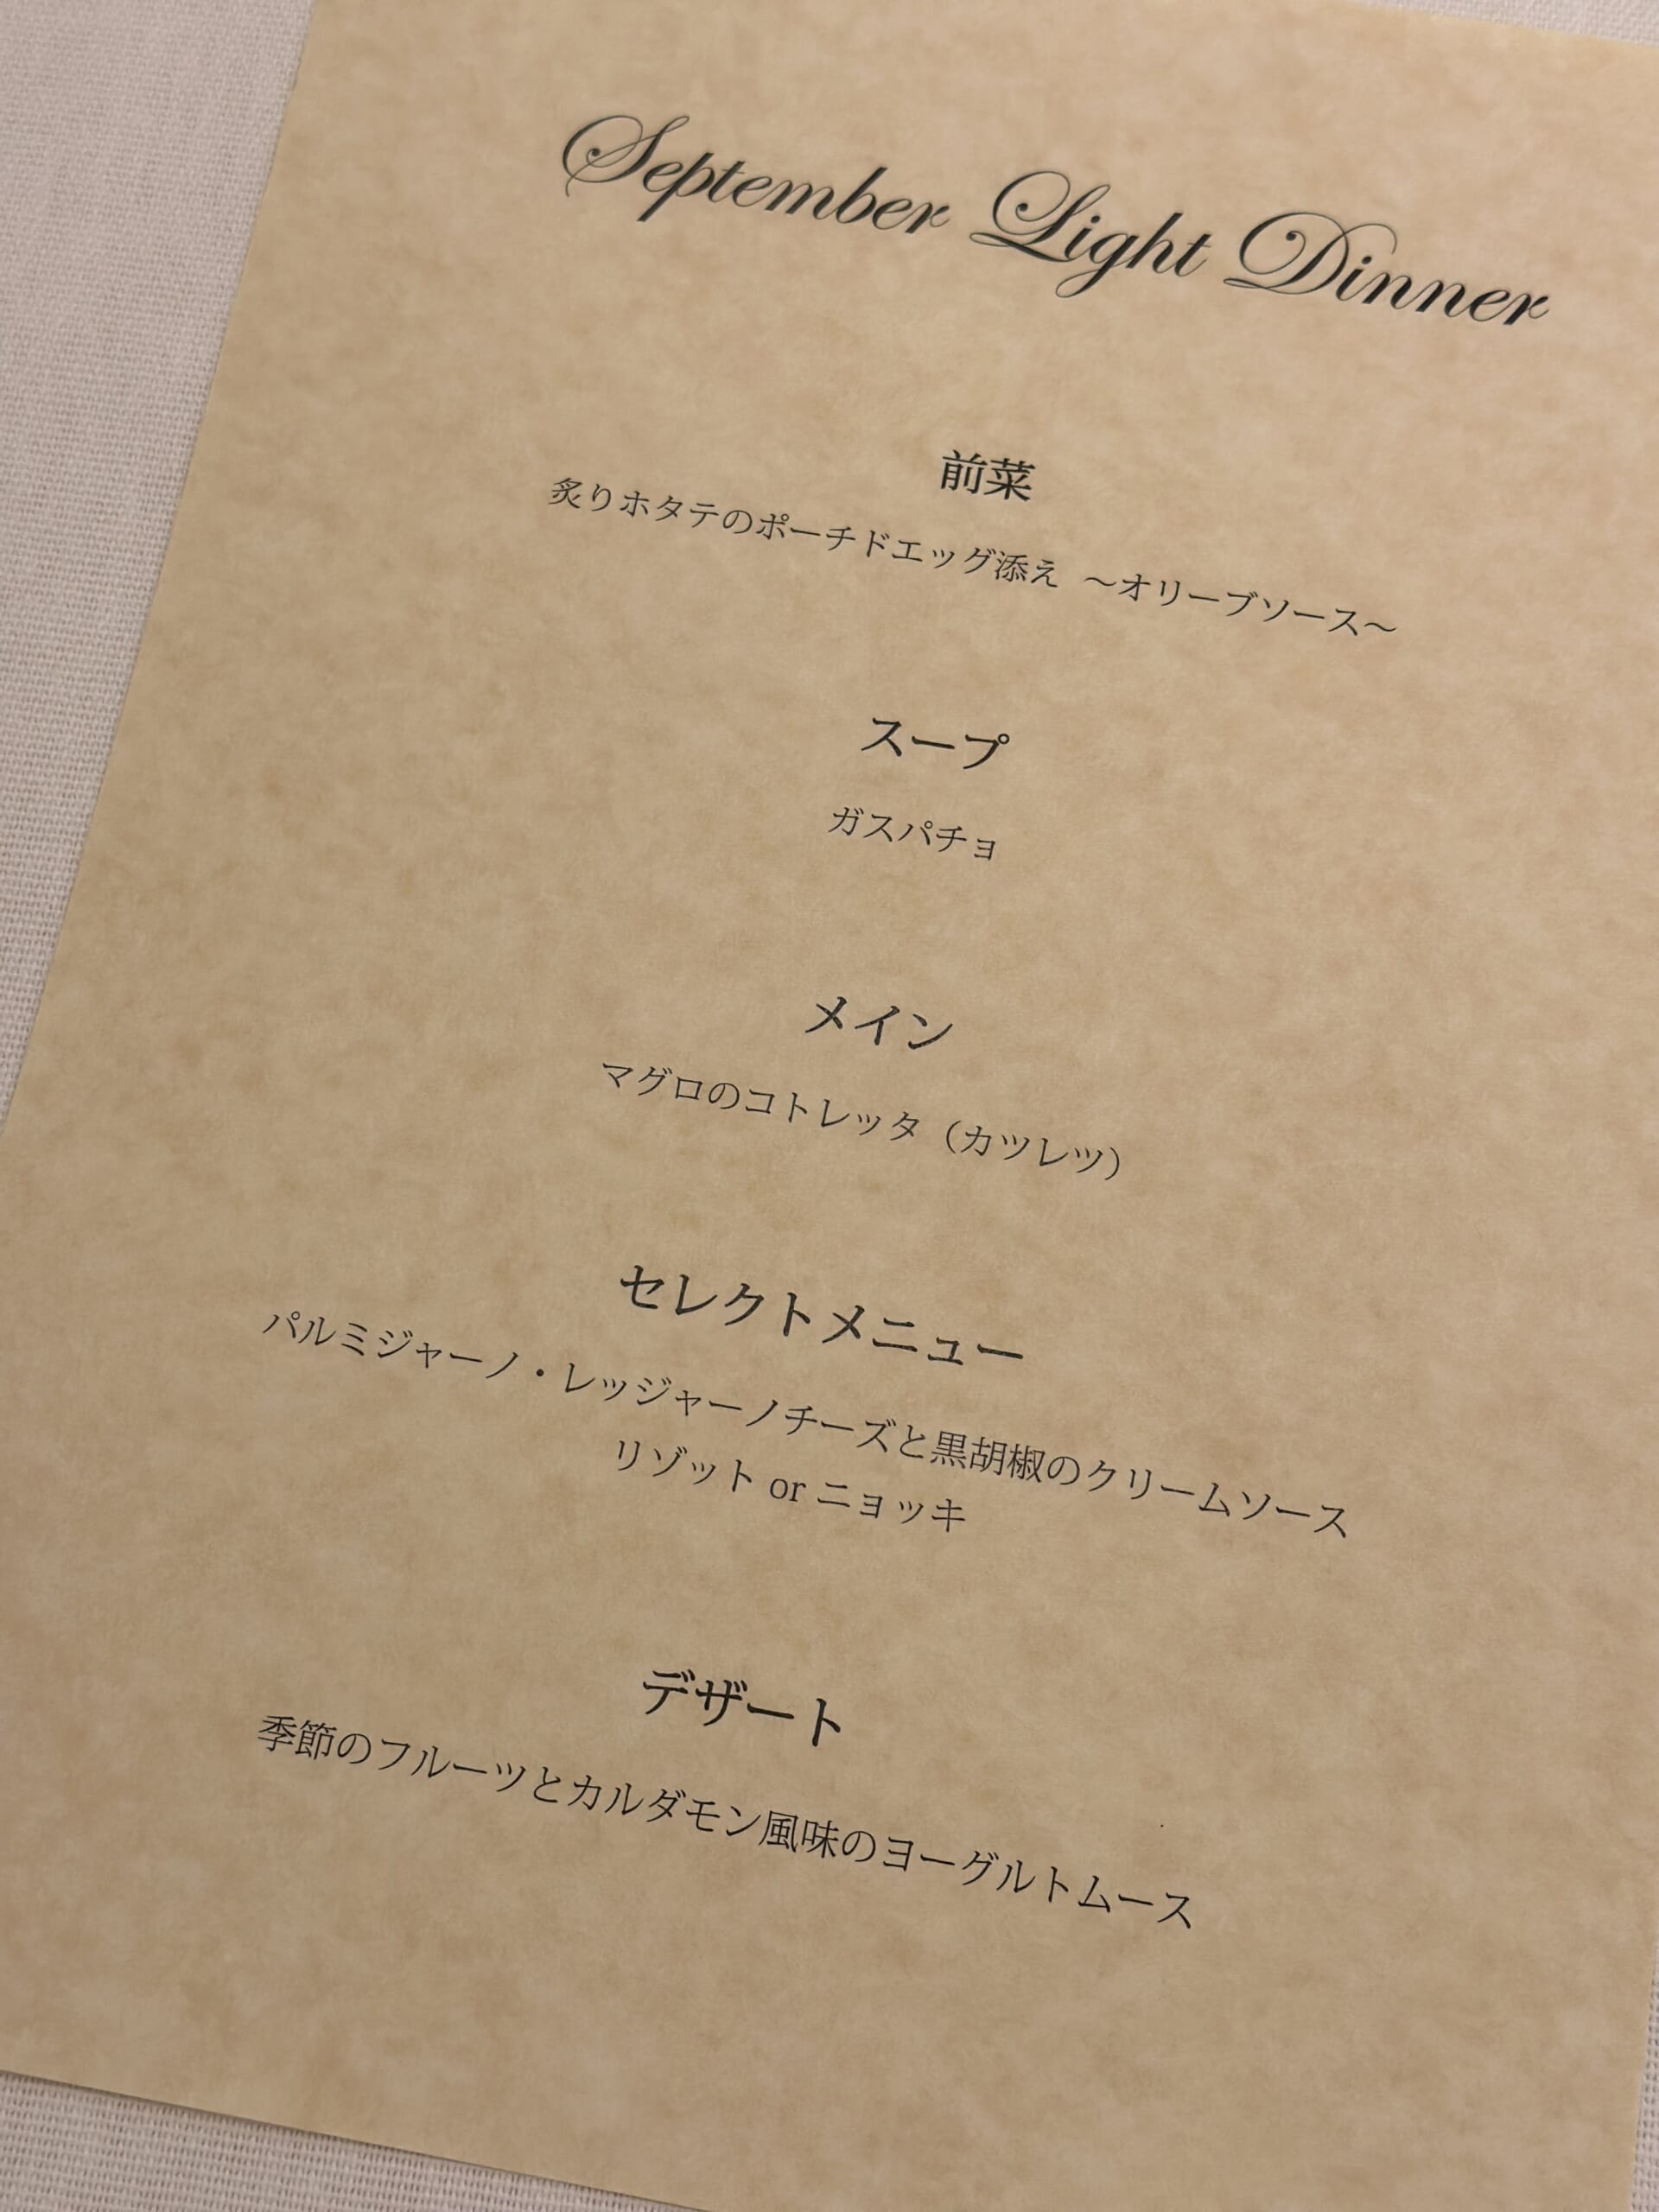 September Light Dinner
前菜
炙りホタテのポーチドエッグ添え ～オリーブソース～
スープ
ガスパチョ
メイン
マグロのコトレッタ（カツレツ）
セレクトメニュー
パルミジャーノ・レッジャーノチーズと黒胡椒のクリームソース
リゾット or ニョッキ
デザート
季節のフルーツとカルダモン風味のヨーグルトムース